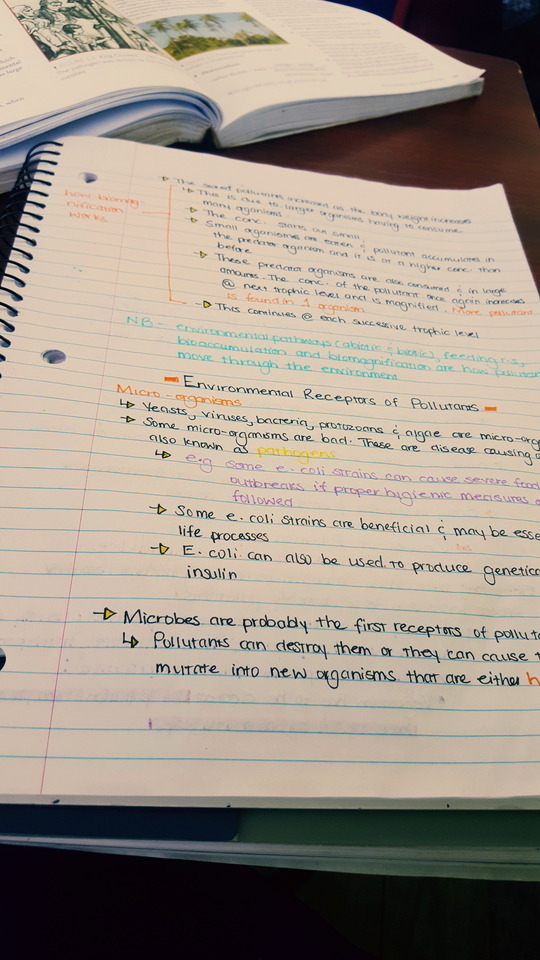 how biomag-
nification
works
→ The sum of pollutants increased as the body weight increases
↳ This is due to larger organisms having to consume
many organisms
→ The conc. starts out small
→ Small organisms are eaten & pollutant accumulates in
the predator organism and it is at a higher conc. than
before
→ These predator organisms are also consumed & in large
amounts. The conc. of the pollutant once again increases
@ next trophic level and is magnified. More pollutant
is found in 1 organism
→ This continues @ each successive trophic level
NB - environmental pathways (abiotic & biotic), feeding
bioaccumulation and biomagnification are how
move through the environment
- Environmental Receptors of Pollutants -
Micro-organisms
↳ Yeasts, viruses, bacteria, protozoans & algae are micro-
→ Some micro-organisms are bad. These are disease causing
also known as pathogens
↳ e.g some e.coli strains can cause severe
outbreaks if proper hygienic measures
followed
→ Some e.coli strains are beneficial & may be
life processes
→ E.coli can also be used to produce
insulin
→ Microbes are probably the first receptors of
↳ Pollutants can destroy them or they can cause
mutate into new organisms that are either